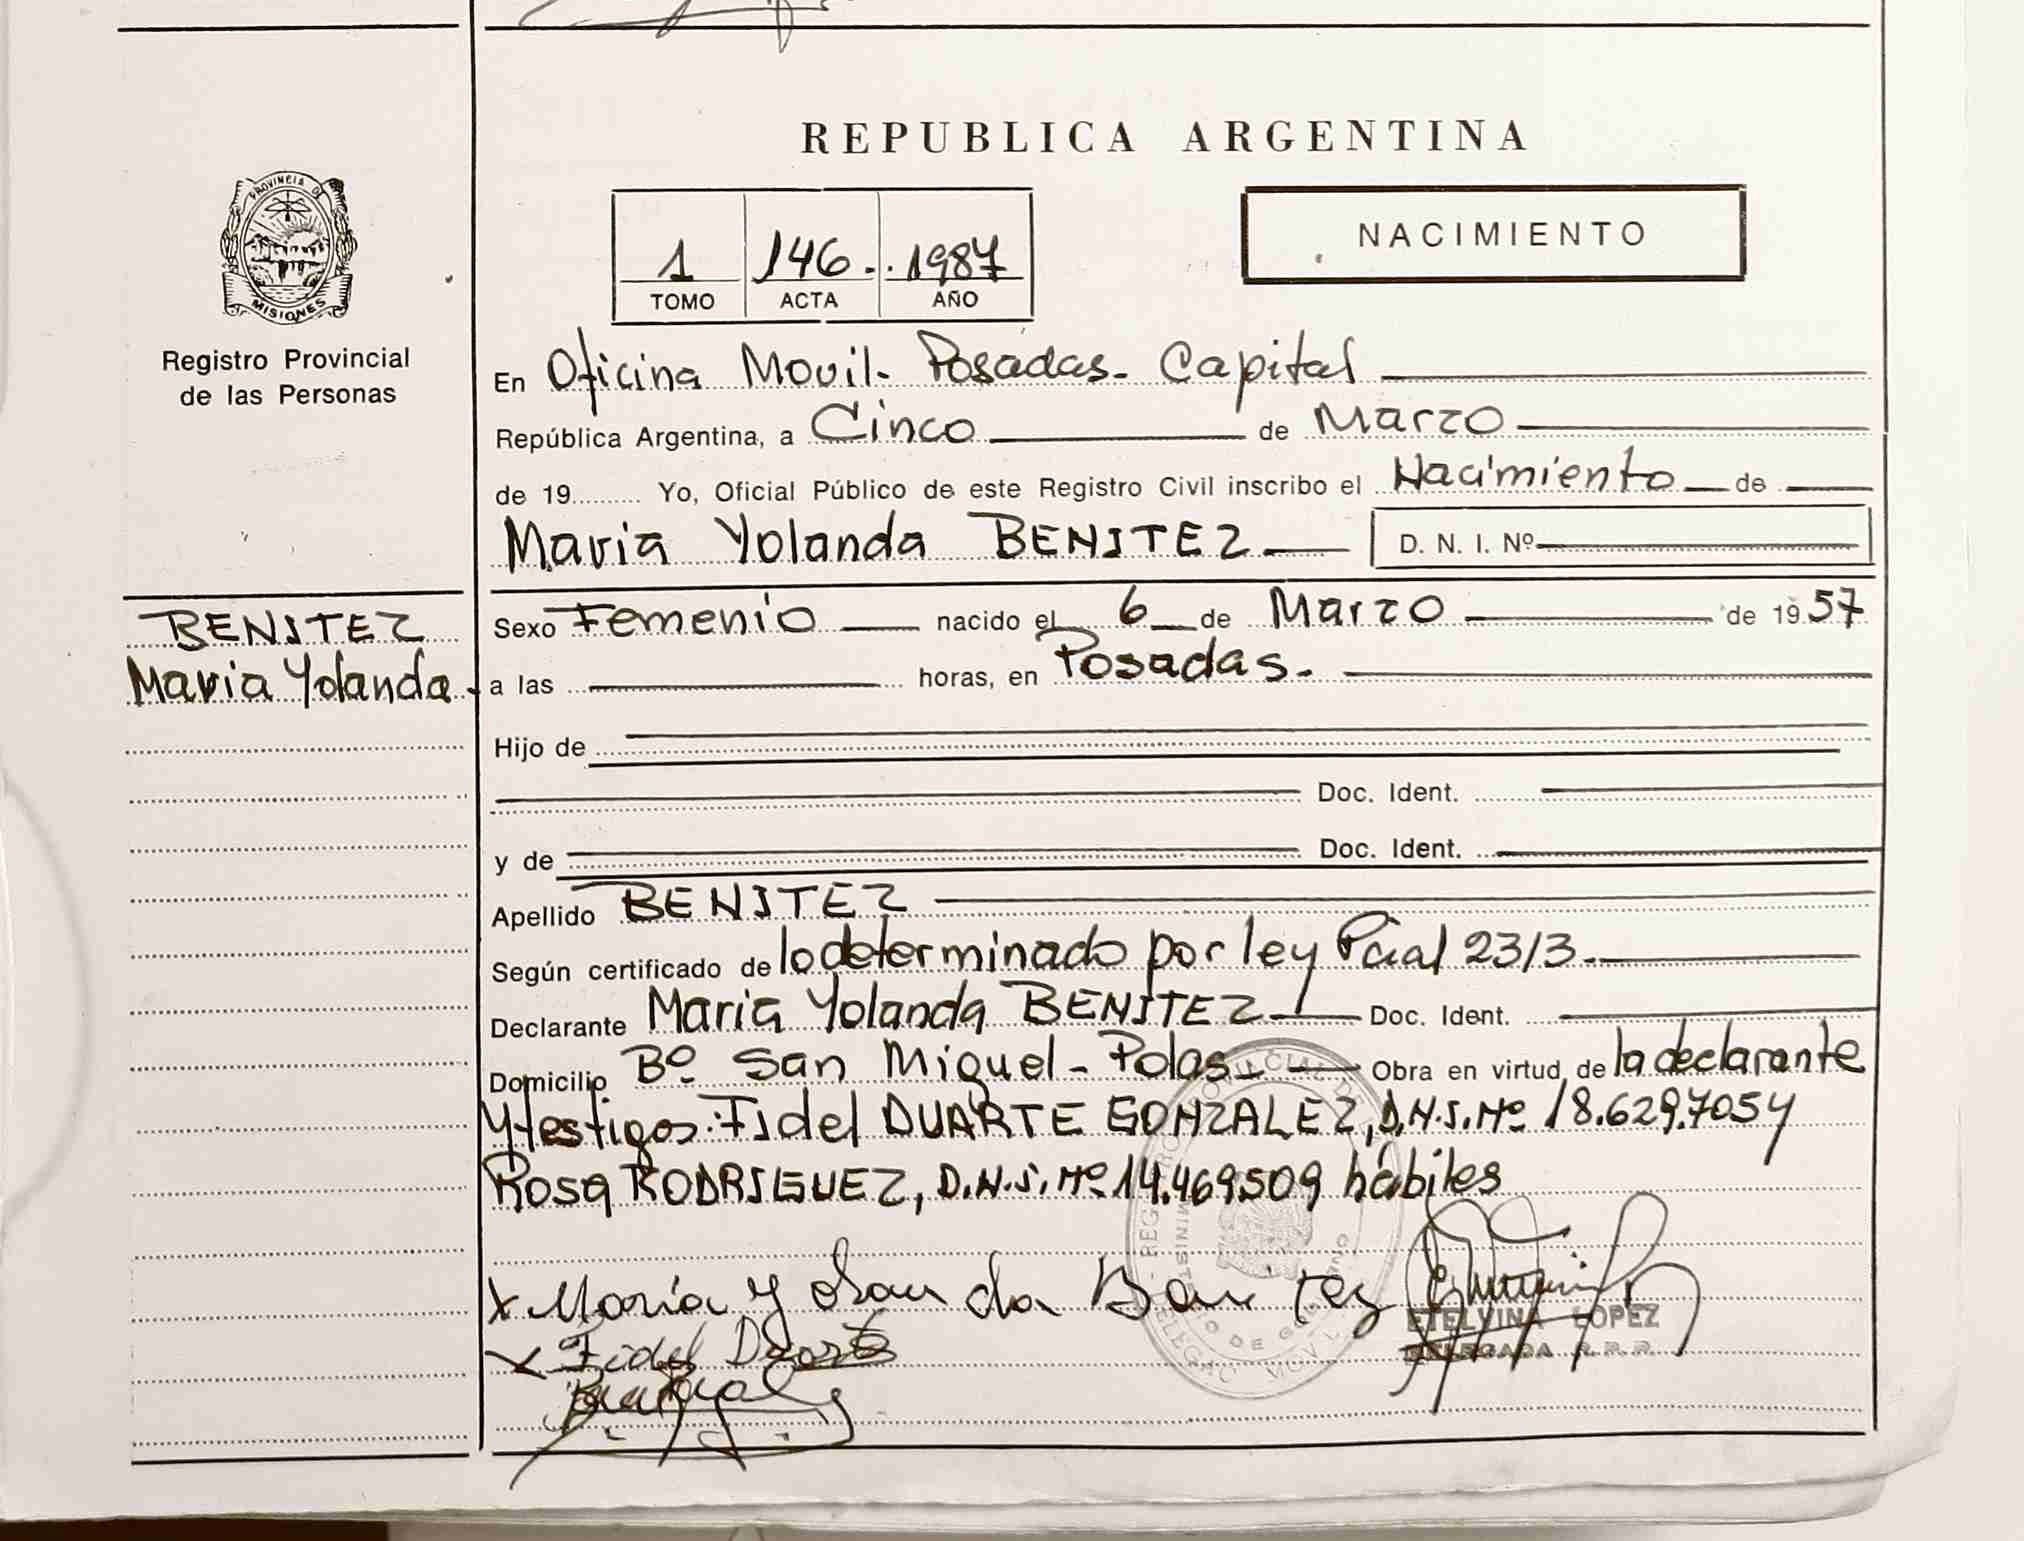 REPUBLICA ARGENTINA
PROVINCIA D
MISIONES
Registro Provincial
de las Personas
1 146 1987
TOMO ACTA AÑO
NACIMIENTO
En Oficina Movil - Posadas - Capital
República Argentina, a Cinco de Marzo
de 19 Yo, Oficial Público de este Registro Civil inscribo el Nacimiento de
Maria Yolanda BENITEZ D. N. I. Nº
BENITEZ
Maria Yolanda.
Sexo Femenio nacido el 6 de Marzo de 1957
a las horas, en Posadas.
Hijo de
Doc. Ident.
y de Doc. Ident.
Apellido BENITEZ
Según certificado de lo determinado por ley Pcial 23/3.
Declarante Maria Yolanda BENITEZ Doc. Ident.
Domicilio Bº San Miguel - Polas Obra en virtud de la declarante
y testigos: Fidel DUARTE GONZALEZ, D.N.I. Nº 18.629.705 y
Rosa RODRIGUEZ, D.N.I. Nº 14.469509 hábiles
x Maria Yolanda Benitez
x Fidel Duarte
ETELVINA LOPEZ
DELEGADA R.P.P.